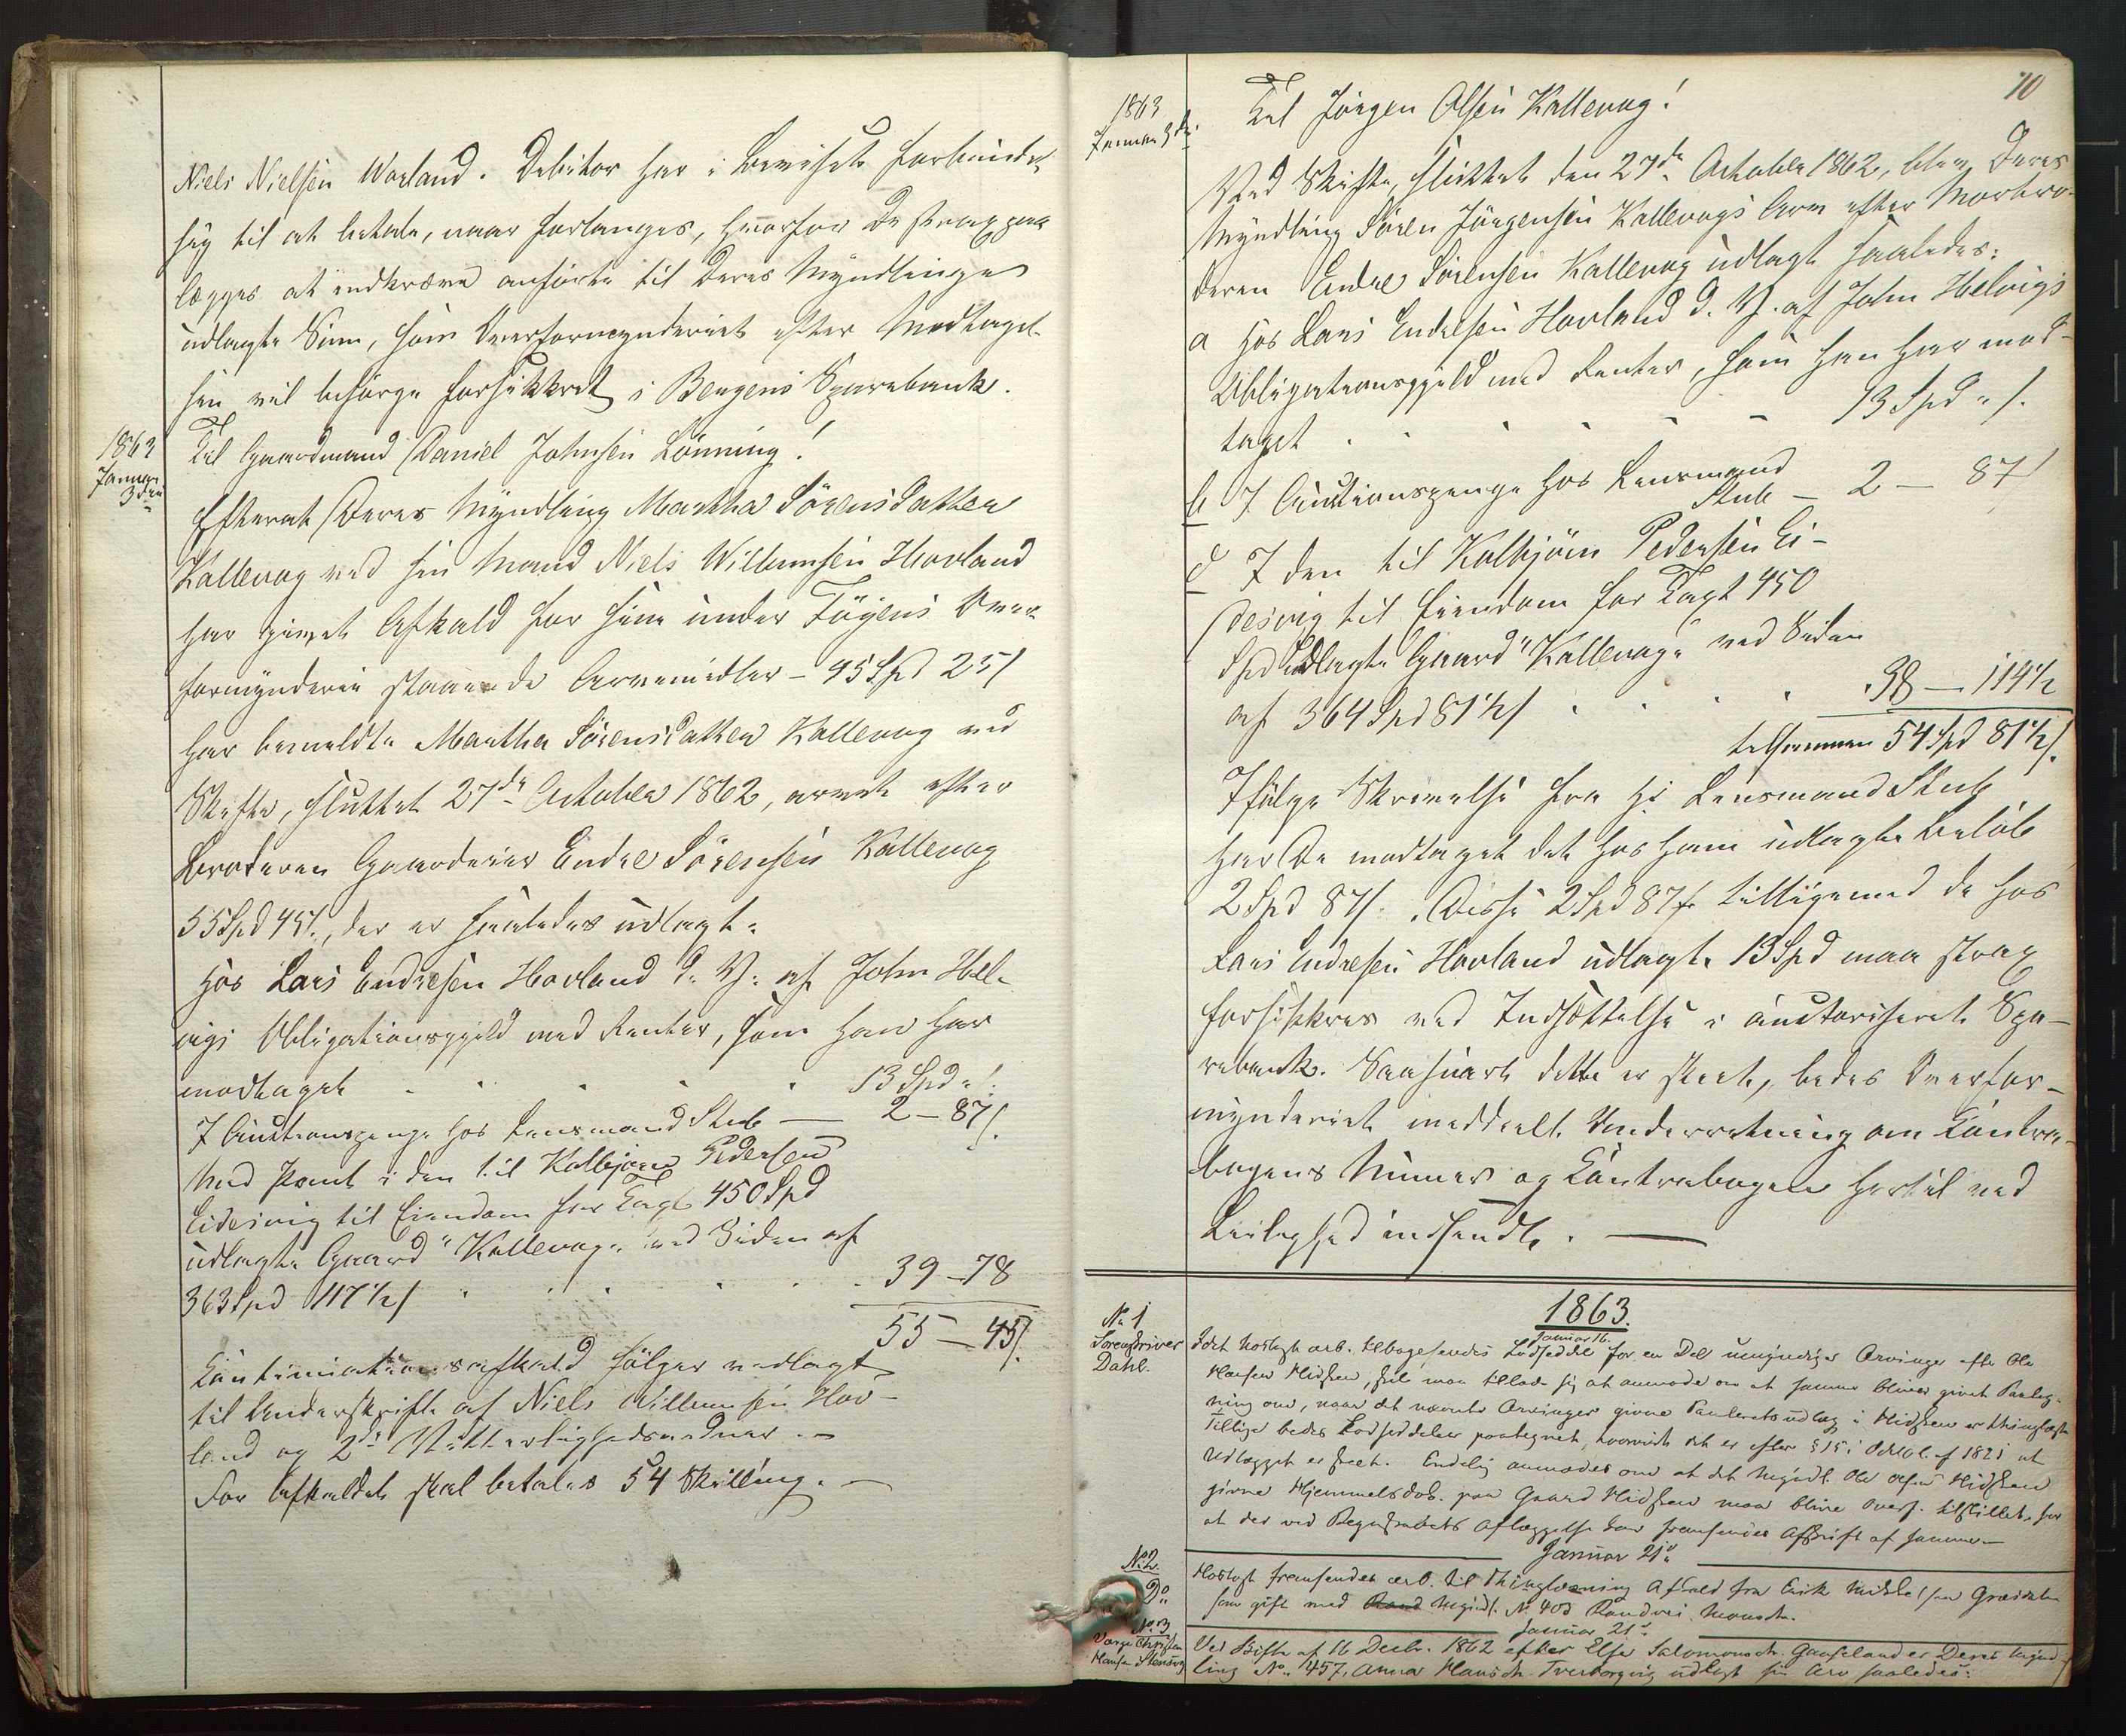 Niels Nielsen Warland. Debitor har i Beviset forbundet
sig til at betale, naar forlanges, hvorfor De strax paa
lægges at indkræve anførte til Deres Myndlinge
udlagte Sum, som Overformynderiet efter Modtagel
sen vil besørge forsikkret i Bergens Sparebank.
1863
Januar
3die
Til Gaardmand Daniel Johnsen Lønning!
Efterat Deres Myndling Martha Sørensdatter
Kallevag ved sin Mand Niels Willumsen Hovland
har givet Afkald for sine under Føyens Over
formynderie staaende Arvemidler - 45 Spd 25 s
har bemeldte Martha Sørensdatter Kallevag ved
Skifte, sluttet 27de October 1862, arvet efter
Broderen Gaardeier Endre Sørensen Kallevag
55 Spd 45 s., der er saaledes udlagt:
Hos Lars Endresen Hovland d. Y. af John Hel-
vigs Obligationsgjeld med Renter, som han har
modtaget . . . . . 13 Spd " s.
I Auctionspenge hos Lensmand Stub — 2 – 87 s.
Med Pant i den til Kolbjørn Pedersen
Eidesvig til Eiendom for Taxt 450 Spd
udlagte Gaard "Kallevag" ved Siden af
363 Spd 117 1/2 s . . . . . 39 – 78
55 – 45 s.
Qvitterings afkald følger vedlagt
til Underskrift af Niels Willumsen Hov-
land og 2de Vitterlighedsvidner. –
For Afkaldet skal betales 54 Skilling. –
70
1863
Januar 3die
Til Jørgen Olsen Kallevag!
Ved Skifte, sluttet den 27de October 1862, blev Deres
Myndling Søren Jørgensen Kallevags Arv efter Morbro-
deren Endre Sørensen Kallevag udlagt saaledes:
a Hos Lars Endresen Hovland d. Y. af John Helvigs
Obligationsgjeld med Renter, som han har mod-
taget . . . . . 13 Spd " s.
b I Auctionspenge hos Lensmand
Stub – 2 – 87 s
c I den til Kolbjørn Pedersen Ei-
desvig til Eiendom for Taxt 450
Spd udlagte Gaard "Kallevag" ved Siden
af 364 Spd 81 1/2 s . . . . 38 — 114 1/2
tilsammen 54 Spd 81 1/2 s.
Ifølge Skrivelse fra Hr Lensmand Stub
har De modtaget det hos ham udlagte Beløb
2 Spd 87 s. Disse 2 Spd 87 s tilligemed de hos
Lars Endresen Hovland udlagte 13 Spd maa strax
forsikkres ved Indsættelse i auctoriseret Spa-
rebank. Saasnart dette er skeet, bedes Overfor-
mynderiet meddeelt Underretning om Contra-
bogens Numer og Contrabogen hertil ved
Leilighed indsendt. —
1863.
Januar 16.
No 1
Sorenskriver
Dahl.
Idet hoslagt ærb. tilbagesendes Lodseddel for en Del umyndige Arvinger efter Ole
Hansen Hidsken, skal man tillade sig at anmode om at samme bliver givet Paateg-
ning om, naar det nævnte Arvinger givne Panterets udlæg i Hidsken er thinglæst
Tillige bedes Lodseddelen paategnet, hvorvidt det er efter § 15 i Odelsl. af 1821 at
Udlægget er skeet. Endelig anmodes om at det Myndl. Ole Olsen Hidsken
givne Hjemmelsdok. paa Gaard Hidsken maa blive overf. tilstillet, for
at der ved Regnskabets Aflæggelse kan fremsendes Afskrift af samme. —
Januar 21de
No 2.
Do
Hoslagt fremsendes ærb. til Thinglæsning Afkald fra Erik Mikkelsen
som gift med Myndl. No 403 Randvei Monsdtr.
Januar 21de
No 3
Værge Christen
Hansen Stensvog
Ved Skifte af 16 Decbr. 1862 efter Else Salomonsdtr. Gaaseland er Deres Mynd-
ling No 457, Anna Hansdtr. Tverborgvig udlagt sin Arv saaledes: